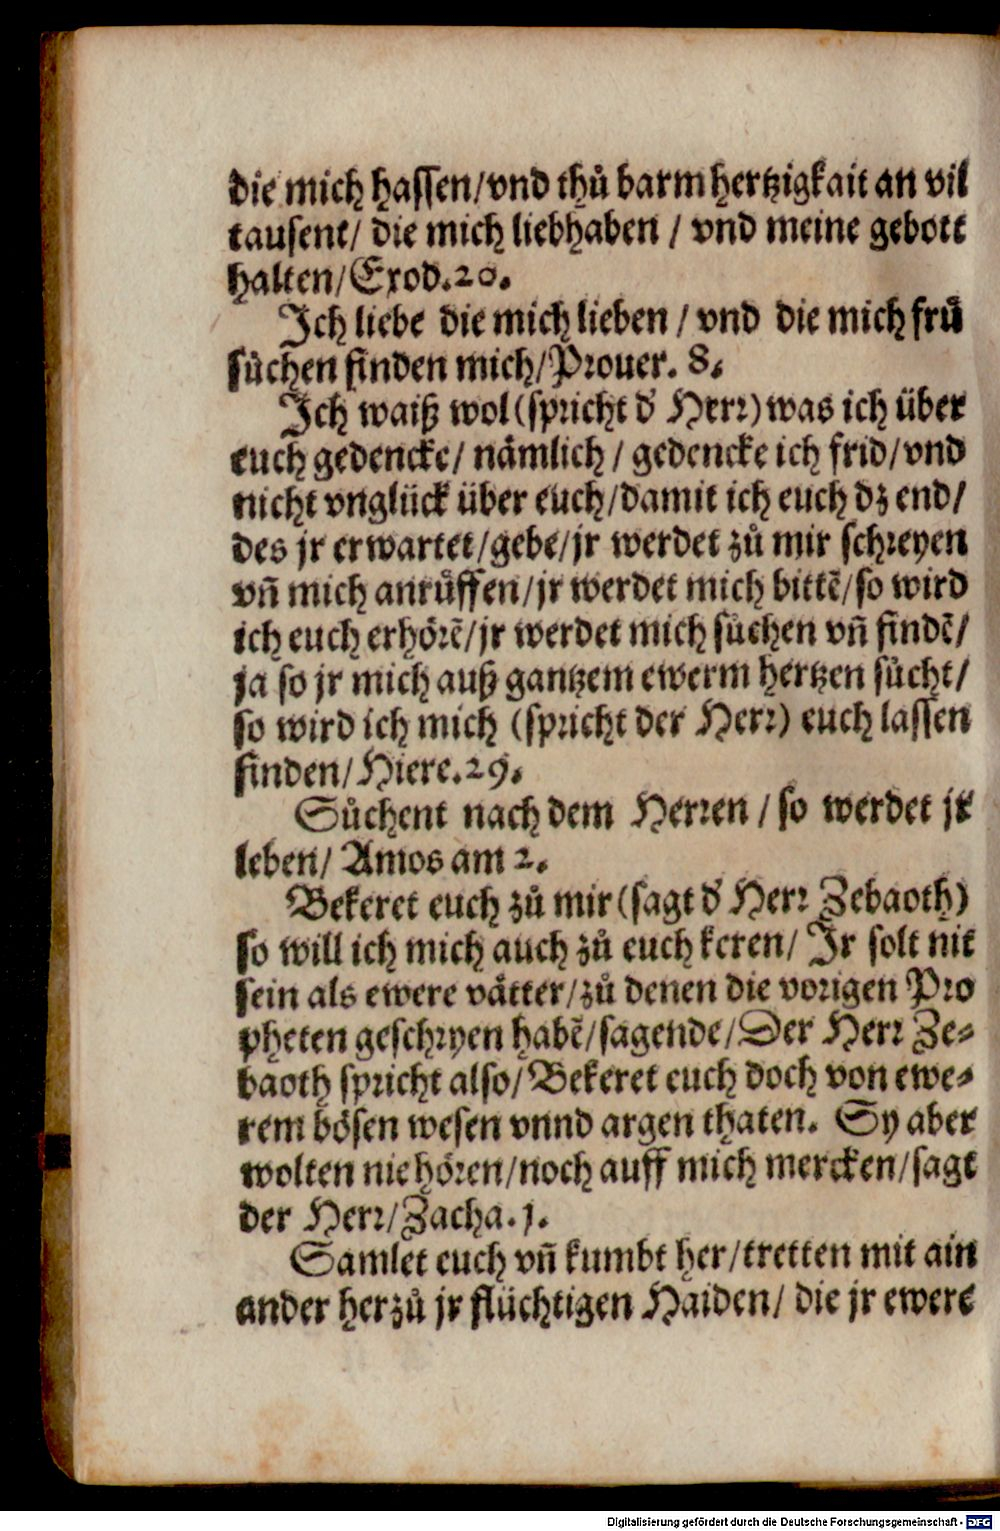 die mich hassen/vnd thů barmhertzigkait an vil
tausent/ die mich liebhaben / vnd meine gebott
halten/Exod.20.
Ich liebe die mich lieben / vnd die mich frů
sůchen finden mich/Prouer. 8.
Ich waiß wol (spricht d' Herr) was ich über
euch gedencke/ nämlich / gedencke ich frid/vnd
nicht vnglück über euch/damit ich euch dz end/
des jr erwartet/gebe/jr werdet zů mir schreyen
vñ mich anrůffen/jr werdet mich bittẽ/so wird
ich euch erhörẽ/jr werdet mich sůchen vñ findẽ/
ja so jr mich auß gantzem ewerm hertzen sůcht/
so wird ich mich (spricht der Herr) euch lassen
finden/Hiere.29.
Sůchent nach dem Herren / so werdet jr
leben/ Amos am 2.
Bekeret euch zů mir (sagt d' Herr Zebaoth)
so will ich mich auch zů euch keren/ Ir solt nit
sein als ewere vätter/zů denen die vorigen Pro
pheten geschryen habẽ/sagende/Der Herr Ze-
baoth spricht also/Bekeret euch doch von ewe-
rem bösen wesen vnnd argen thaten. Sy aber
wolten nie hören/noch auff mich mercken/sagt
der Herr/Zacha.1.
Samlet euch vñ kumbt her/tretten mit ain
ander herzů jr flüchtigen Haiden/ die jr ewere
Digitalisierung gefördert durch die Deutsche Forschungsgemeinschaft - DFG